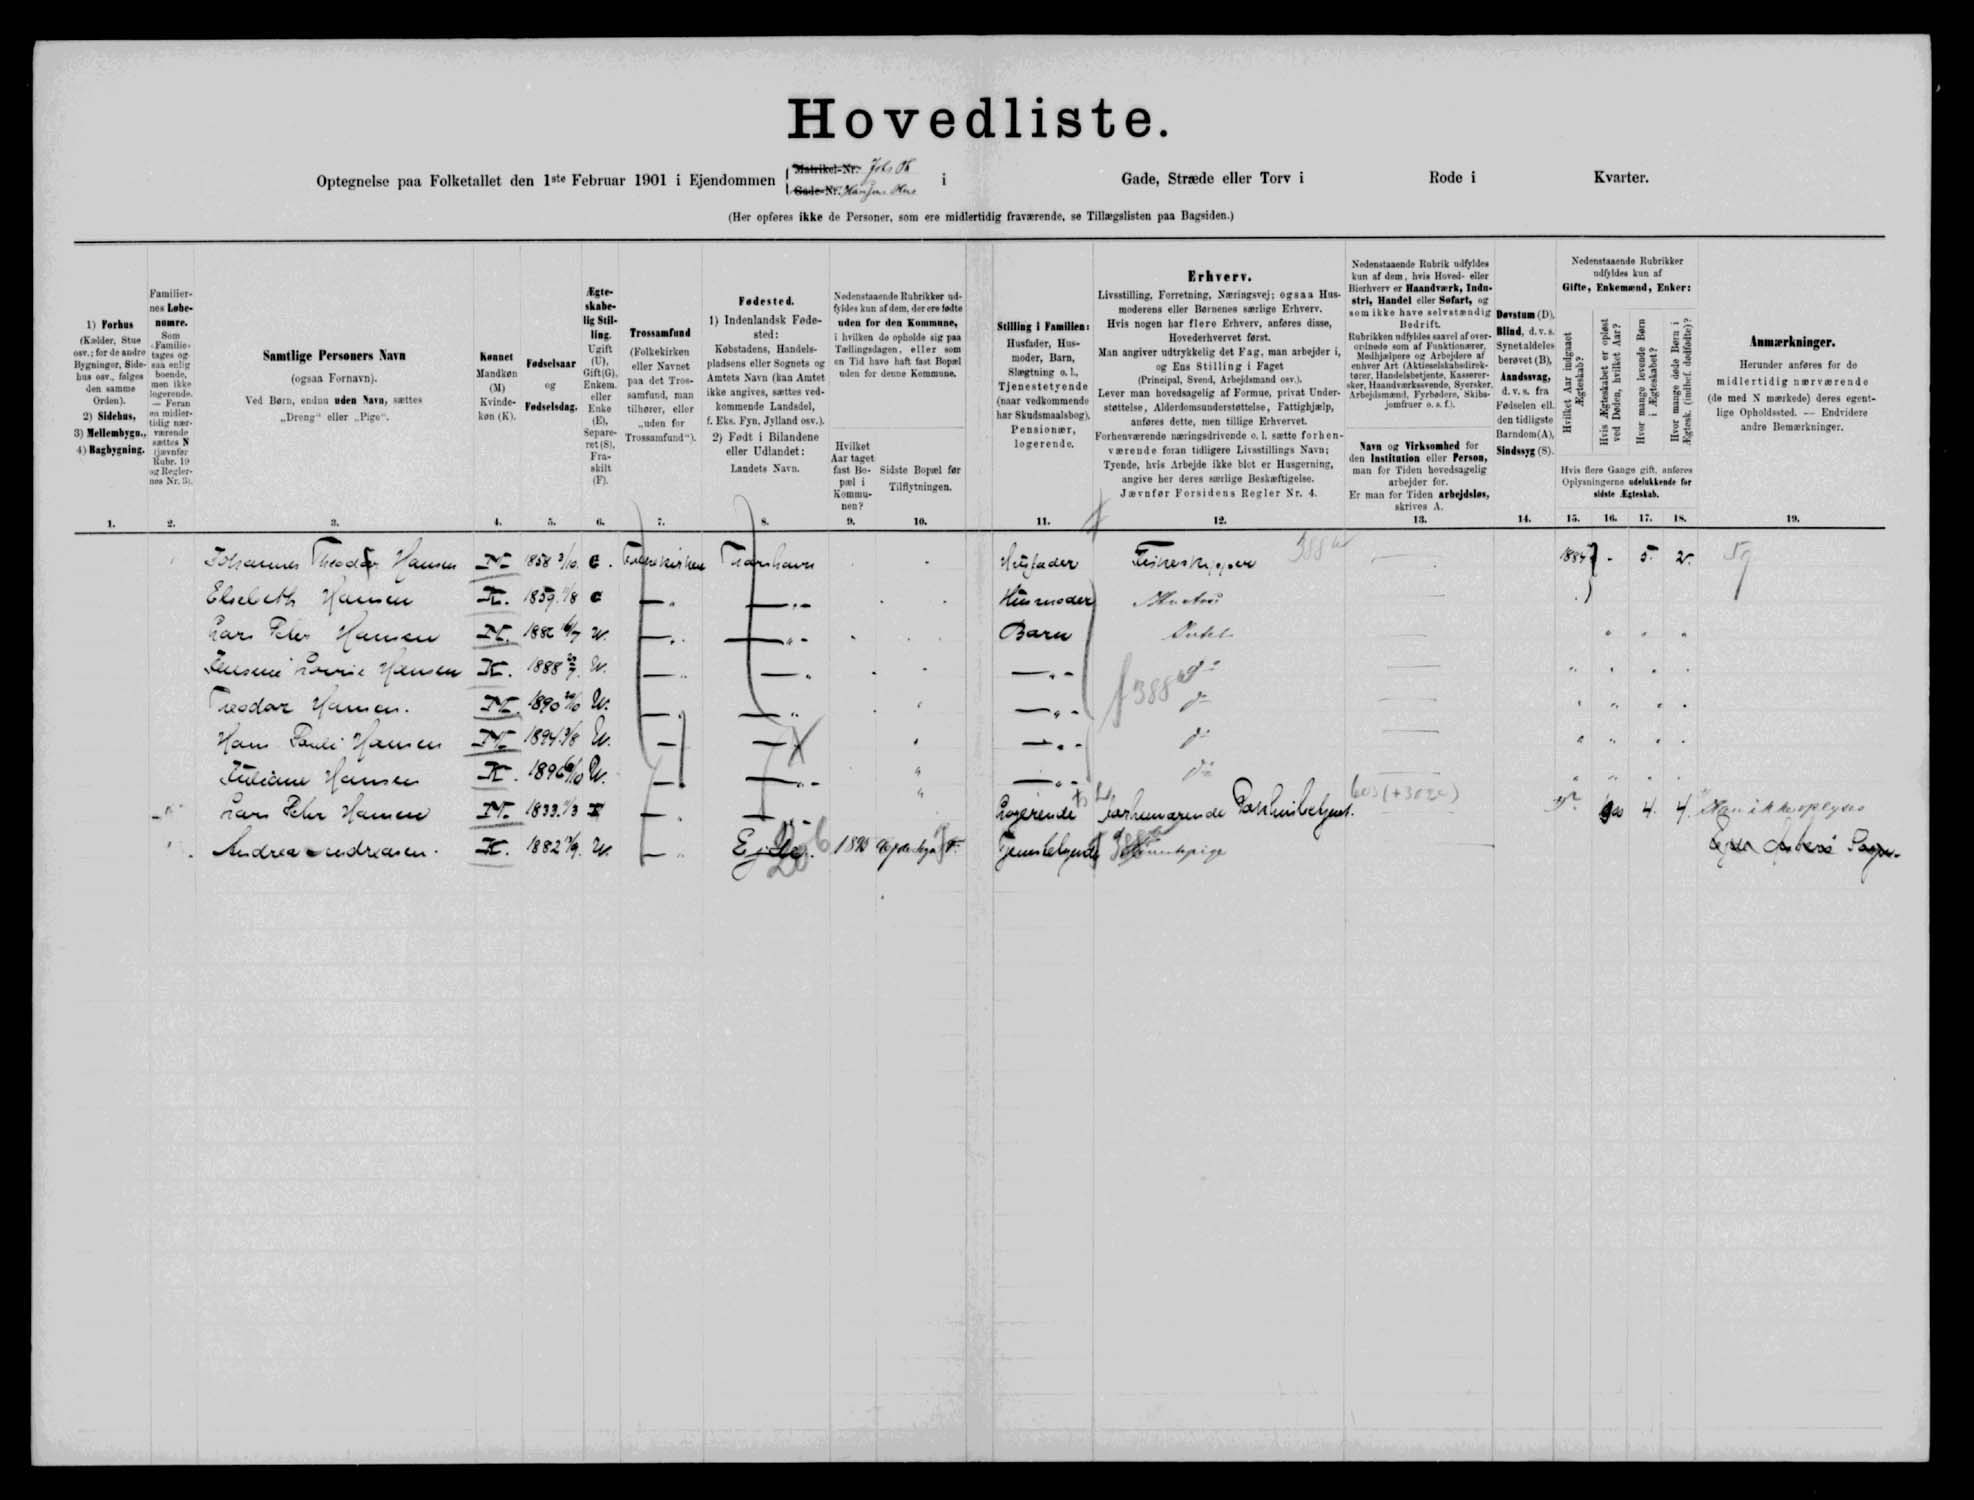 Hovedliste.
Optegnelse paa Folketallet den 1ste Februar 1901 i Ejendommen { Matrikel-Nr. Gade-Nr. Hansens Hus i Gade, Stræde eller Torv i Rode i Kvarter.
(Her opføres ikke de Personer, som ere midlertidig fraværende, se Tillægslisten paa Bagsiden.)
1) Forhus (Kælder, Stue osv.; for de andre Bygninger, Sidehus osv., følges den samme Orden). 2) Sidehus, 3) Mellembygn., 4) Bagbygning.
Familiernes Løbenumre. Som »Familie« tages ogsaa enlig boende, men ikke logerende. — Foran en midlertidig nærværende sættes N (jævnfør Rubr. 19 og Reglernes Nr. 3).
Samtlige Personers Navn (ogsaa Fornavn). Ved Børn, endnu uden Navn, sættes „Dreng“ eller „Pige“.
Kønnet Mandkøn (M) Kvindekøn (K).
Fødselsaar og Fødselsdag.
Ægteskabelig Stilling. Ugift (U), Gift (G), Enkem. eller Enke (E), Separeret (S), Fraskilt (F).
Trossamfund (Folkekirken eller Navnet paa det Trossamfund, man tilhører, eller „uden for Trossamfund“).
Fødested. 1) Indenlandsk Fødested: Købstadens, Handelspladsens eller Sognets og Amtets Navn (kan Amtet ikke angives, sættes vedkommende Landsdel, f. Eks. Fyn, Jylland osv.). 2) Født i Bilandene eller Udlandet: Landets Navn.
Nedenstaaende Rubrikker udfyldes kun af dem, der ere fødte uden for den Kommune, i hvilken de opholde sig paa Tællingsdagen, eller som en Tid have haft fast Bopæl uden for denne Kommune.
Hvilket Aar taget fast Bopæl i Kommunen?
Sidste Bopæl før Tilflytningen.
Stilling i Familien: Husfader, Husmoder, Barn, Slægtning o. l., Tjenestetyende (naar vedkommende har Skudsmaalsbog), Pensionær, logerende.
Erhverv.
Livsstilling, Forretning, Næringsvej; ogsaa Husmoderens eller Børnenes særlige Erhverv.
Hvis nogen har flere Erhverv, anføres disse, Hovederhvervet først.
Man angiver udtrykkelig det Fag, man arbejder i, og Ens Stilling i Faget (Principal, Svend, Arbejdsmand osv.).
Lever man hovedsagelig af Formue, privat Understøttelse, Alderdomsunderstøttelse, Fattighjælp, anføres dette, men tillige Erhvervet.
Forhenværende næringsdrivende o. l. sætte forhenværende foran tidligere Livsstillings Navn; Tyende, hvis Arbejde ikke blot er Husgerning, angive her deres særlige Beskæftigelse.
Jævnfør Forsidens Regler Nr. 4.
Nedenstaaende Rubrik udfyldes kun af dem, hvis Hoved- eller Bierhverv er Haandværk, Industri, Handel eller Søfart, og som ikke have selvstændig Bedrift.
Rubrikken udfyldes saavel af overordnede som af Funktionærer, Medhjælpere og Arbejdere af enhver Art (Aktieselskabsdirektører, Handelsbetjente, Kasserersker, Haandværkssvende, Syersker, Arbejdsmænd, Fyrbødere, Skibsjomfruer o. s. f.).
Navn og Virksomhed for den Institution eller Person, man for Tiden hovedsagelig arbejder for. Er man for Tiden arbejdsløs, skrives A.
Døvstum (D), Blind, d. v. s. Synet aldeles berøvet (B), Aandssvag, d. v. s. fra Fødselen ell. den tidligste Barndom (A), Sindssyg (S).
Nedenstaaende Rubrikker udfyldes kun af Gifte, Enkemænd, Enker:
Hvilket Aar indgaaet Ægteskab?
Hvis Ægteskabet er opløst ved Døden, hvilket Aar?
Hvor mange levende Børn i Ægteskabet?
Hvor mange døde Børn i Ægtesk. (indbef. dødfødte)?
Hvis flere Gange gift, anføres Oplysningerne udelukkende for sidste Ægteskab.
Anmærkninger. Herunder anføres for de midlertidig nærværende (de med N mærkede) deres egentlige Opholdssted. — Endvidere andre Bemærkninger.
1. 2. 3. 4. 5. 6. 7. 8. 9. 10. 11. 12. 13. 14. 15. 16. 17. 18. 19.
Johannes Theodor Hansen M. 1858 G. Folkekirken Thorshavn Husfader Fiskeskipper 388 1884 5. 2.
Elsebeth Hansen K. 1859 G Husmoder
Lars Peter Hansen M. 1886 U. Barn
Hansen K. 1888 U.
Teodor Hansen. M. 1890 U. 388
Hans Pauli Hansen M. 1894 U.
Juliane Hansen K. 1896 U.
Lars Peter Hansen M. 1833 E Logerende forhenværende 4. 4. Kan ikke oplyses
Andrea Andreasen. K. 1882 U. Ejde. Tjenestetyende